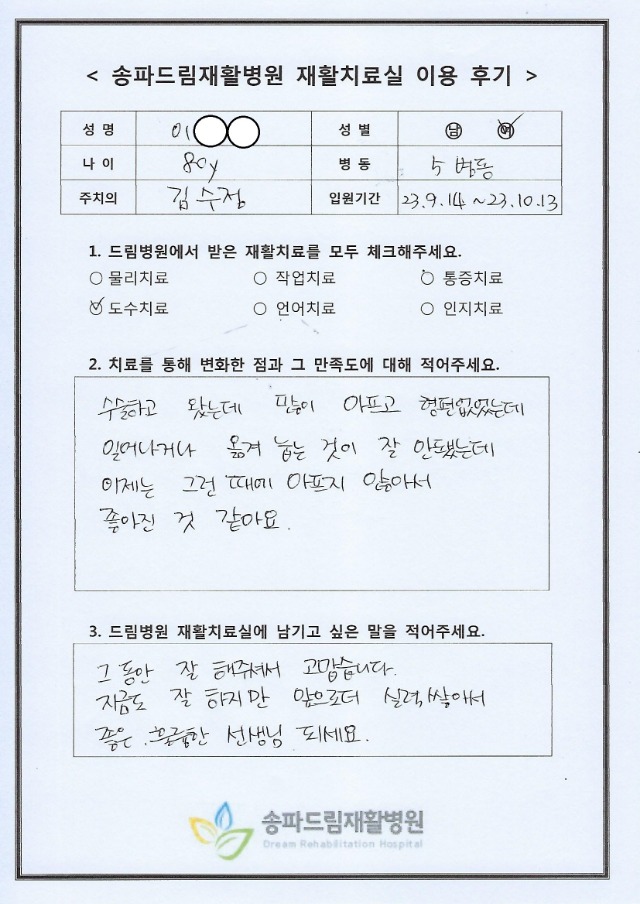 < 송파드림재활병원 재활치료실 이용 후기 >
성 명 이 성 별 남 여
나 이 80y 병 동 5 병동
주치의 김수정 입원기간 23.9.14 ~ 23.10.13
1. 드림병원에서 받은 재활치료를 모두 체크해주세요.
○ 물리치료 ○ 작업치료 ○ 통증치료
○ 도수치료 ○ 언어치료 ○ 인지치료
2. 치료를 통해 변화한 점과 그 만족도에 대해 적어주세요.
수술하고 왔는데 많이 아프고 형편없었는데
일어나거나 옮겨 눕는 것이 잘 안됐는데
이제는 그런 때에 아프지 않아서
좋아진 것 같아요.
3. 드림병원 재활치료실에 남기고 싶은 말을 적어주세요.
그 동안 잘 해주셔서 고맙습니다.
지금도 잘 하지만 앞으로더 실력쌓아서
좋은 훌륭한 선생님 되세요.
송파드림재활병원
Dream Rehabilitation Hospital